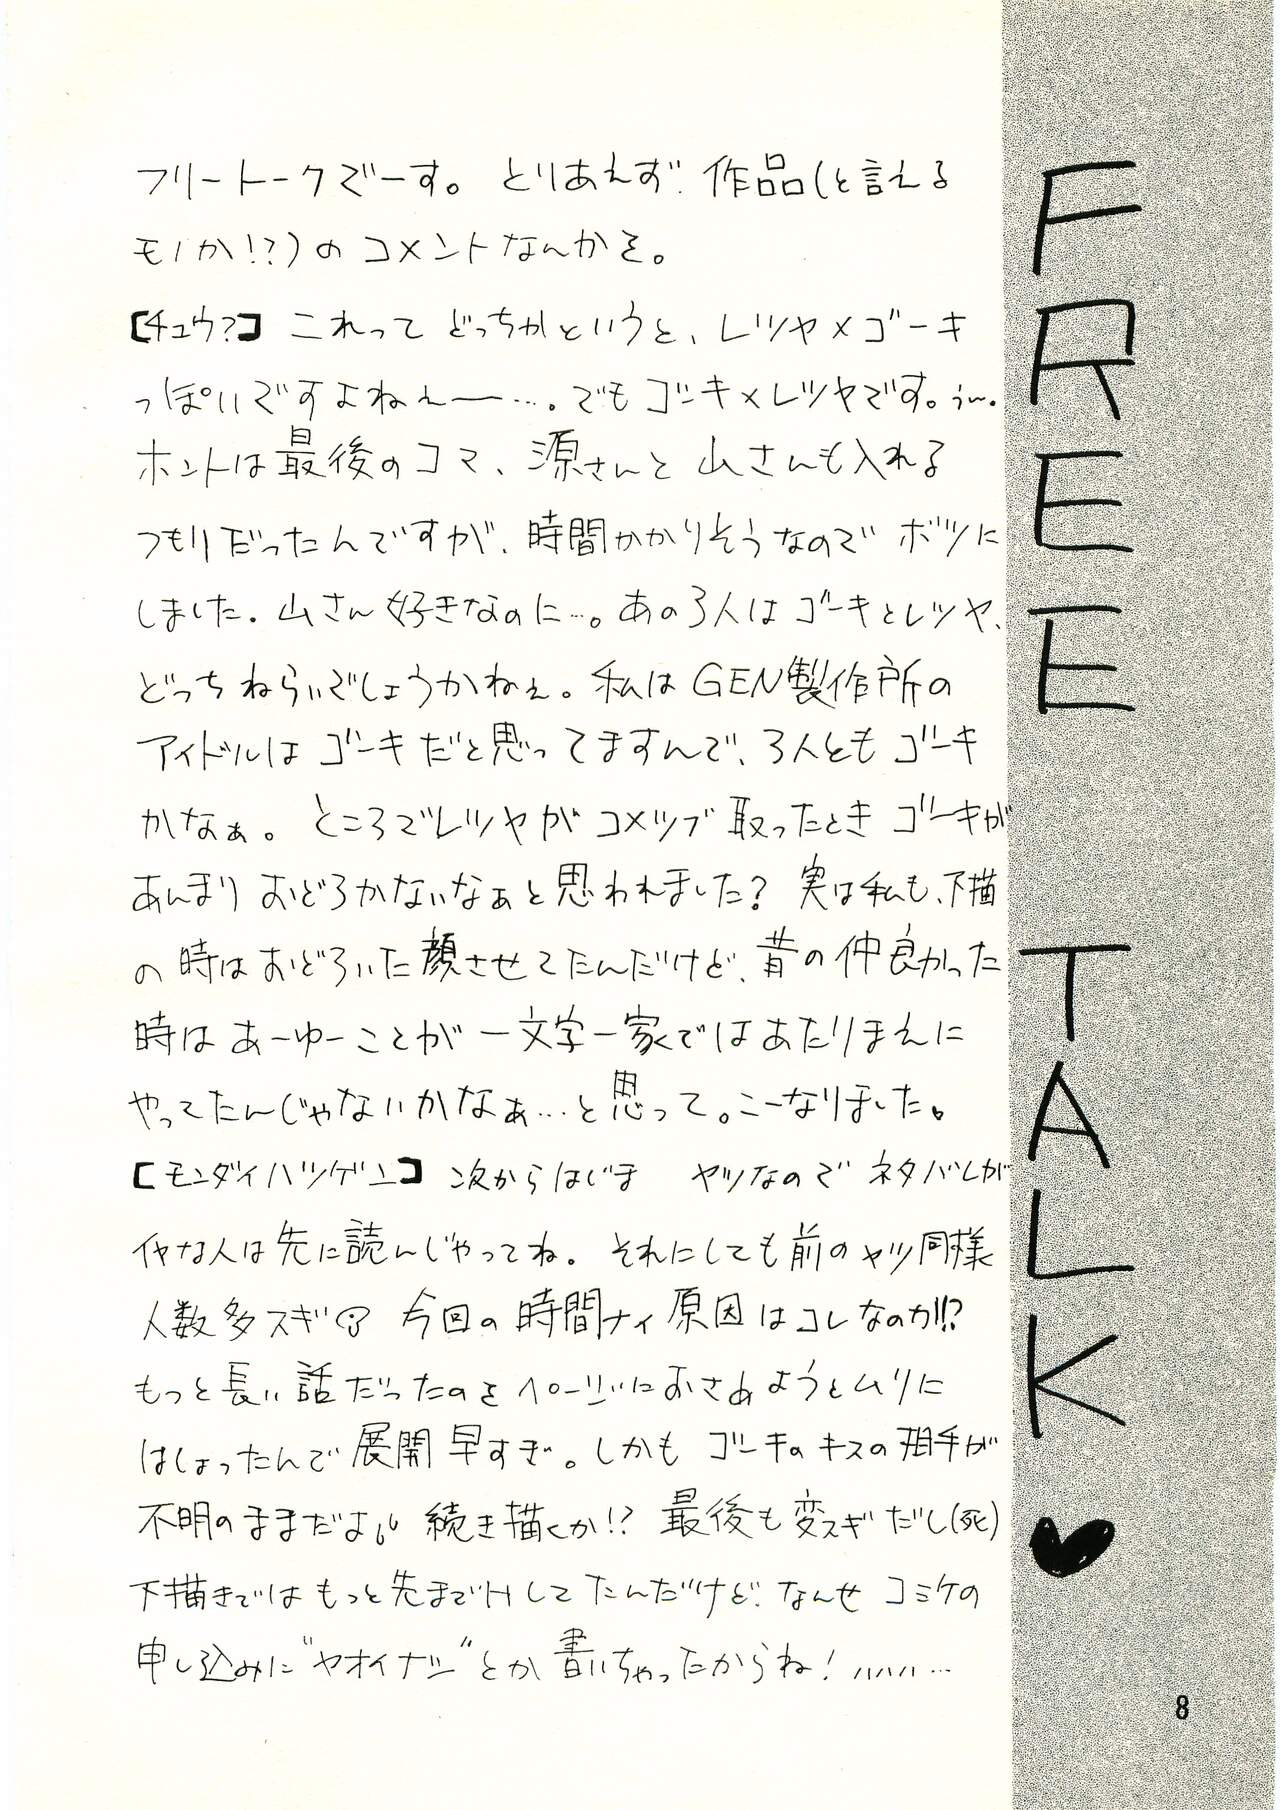 FREE TALK ♥
フリートークでーす。とりあえず、作品(と言える
モノか!?)のコメントなんかを。
【チュウ?】これってどっちかというと、レツヤ×ゴーキ
っぽいですよねぇ──…。でもゴーキ×レツヤです。う〜。
ホントは最後のコマ、源さんと山さんも入れる
つもりだったんですが、時間かかりそうなのでボツに
しました。山さん好きなのに…。あの3人はゴーキとレツヤ、
どっちねらいでしょうかねぇ。私はGEN製作所の
アイドルはゴーキだと思ってますんで、3人ともゴーキ
かなぁ。ところでレツヤがコメツブ取ったときゴーキが
あんまりおどろかないなぁと思われました?実は私も、下描
の時はおどろいた顔させてたんだけど、昔の仲良かった
時はあーゆーことが一文字一家ではあたりまえに
やってたんじゃないかなぁ…と思って。こーなりました。
【モンダイハツゲン】次からはじま ヤツなのでネタバレが
イヤな人は先に読んじゃってね。それにしても前のヤツ同様
人数多スギ 今回の時間ナイ原因はコレなのか!!?
もっと長い話だったのをページにおさめようとムリに
はしょったんで展開早すぎ。しかもゴーキのキスの相手が
不明のままだよ。続き描くか!?最後も変スギだし(死)
下描きではもっと先までHしてたんだけど、なんせコミケの
申し込みに"ヤオイナシ"とか書いちゃったからね!ハハハハ…
8